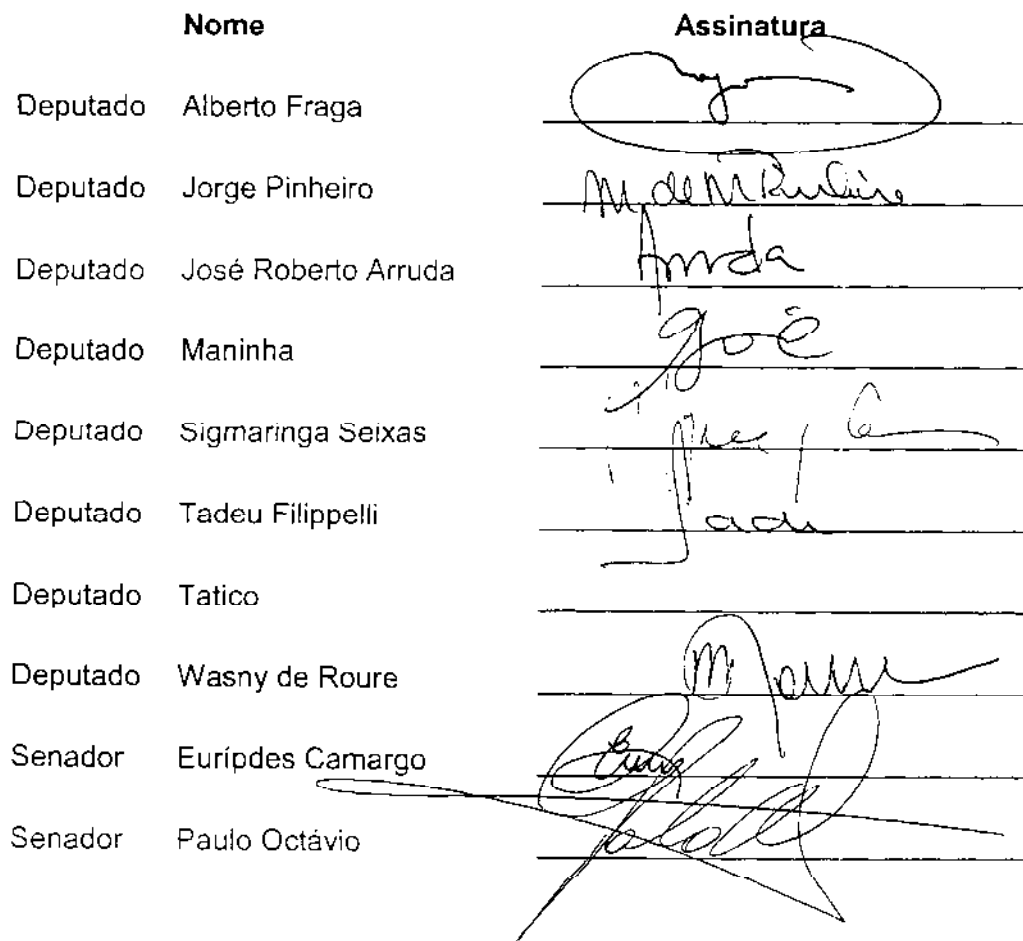 Nome Assinatura
Deputado Alberto Fraga
Deputado Jorge Pinheiro
Deputado José Roberto Arruda Arruda
Deputado Maninha
Deputado Sigmaringa Seixas
Deputado Tadeu Filippelli
Deputado Tatico
Deputado Wasny de Roure
Senador Eurípdes Camargo
Senador Paulo Octávio